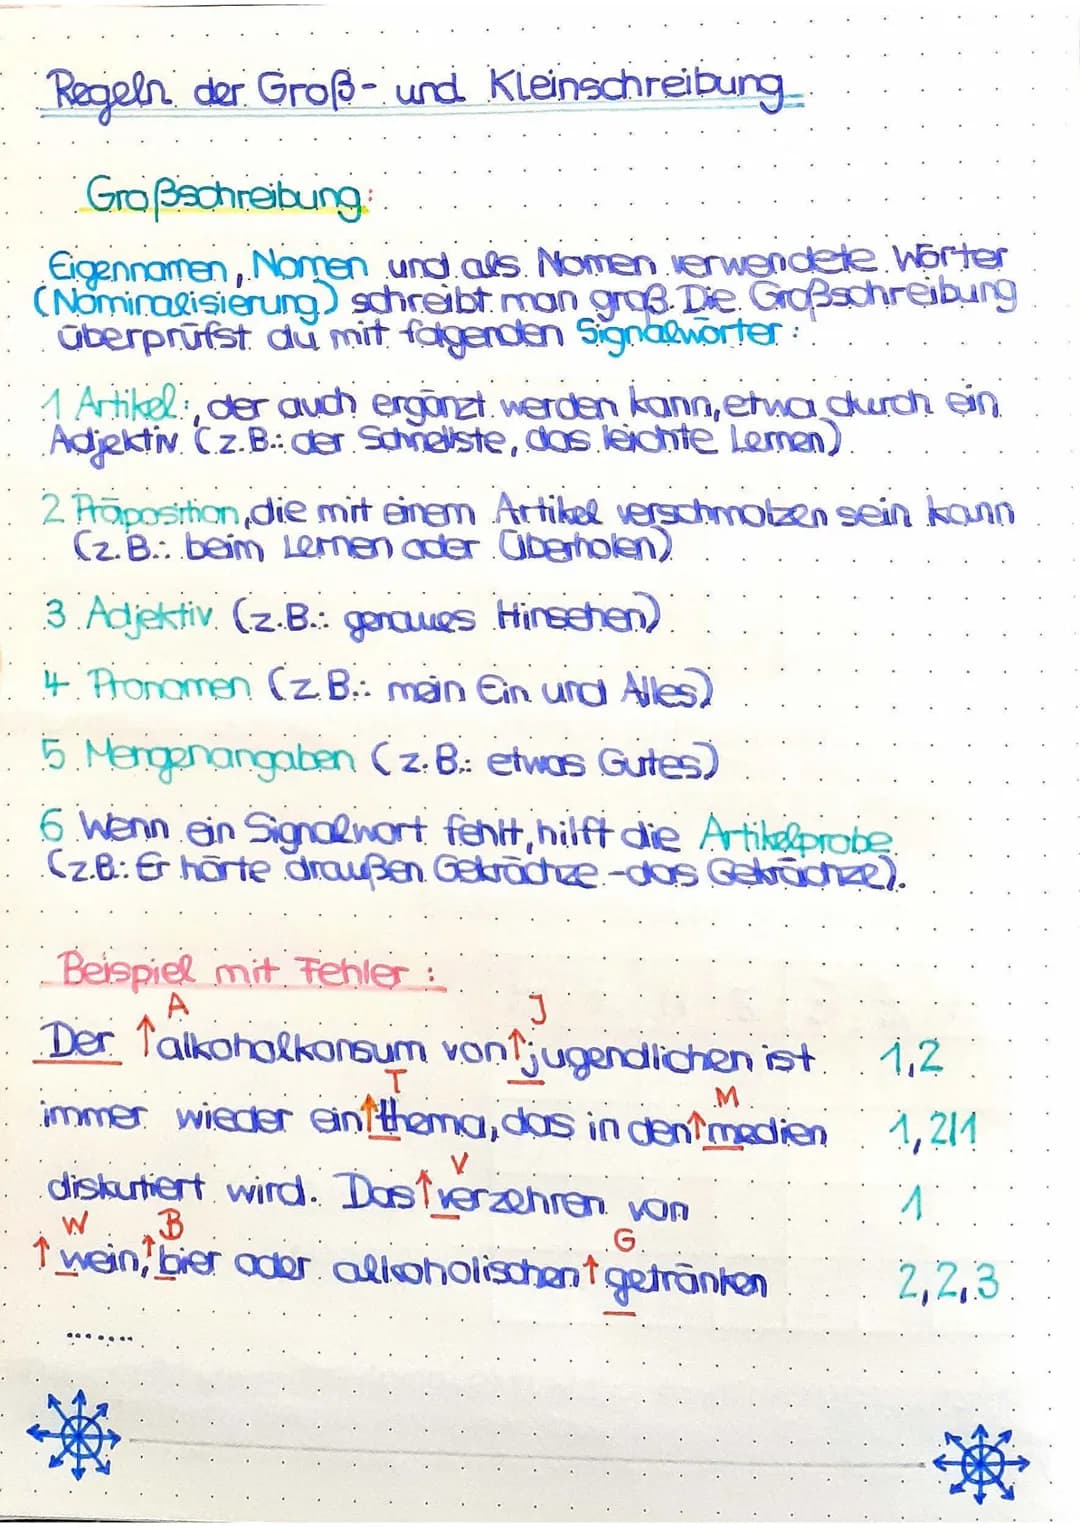 Regeln der Groß- und Kleinschreibung
Großschreibung:
Eigennamen, Nomen und als Nomen verwendete Wörter
(Nominalisierung) schreibt man groß. Die Großschreibung
überprüfst du mit folgenden Signalwörter:
1 Artikel:, der auch ergänzt werden kann, etwa durch ein
Adjektiv (z.B.: der Schnellste, das leichte Lernen)
2 Präposition, die mit einem Artikel verschmolzen sein kann
(z.B.: beim Lernen oder Überholen)
3 Adjektiv (z.B.: genaues Hinsehen)
4 Pronomen (z.B.: mein Ein und Alles)
5 Mengenangaben (z.B.: etwas Gutes)
6 Wenn ein Signalwort fehlt, hilft die Artikelprobe.
(z.B: Er hörte draußen Gekrächze - das Gekrächze).
Beispiel mit Fehler:
A J
Der ↑alkoholkonsum von ↑jugendlichen ist 1,2
T M
immer wieder ein ↑thema, das in den ↑medien 1,2/1
V
diskutiert wird. Das ↑verzehren von 1
W B G
↑wein, ↑bier oder alkoholischen ↑getränken 2,2,3
.......